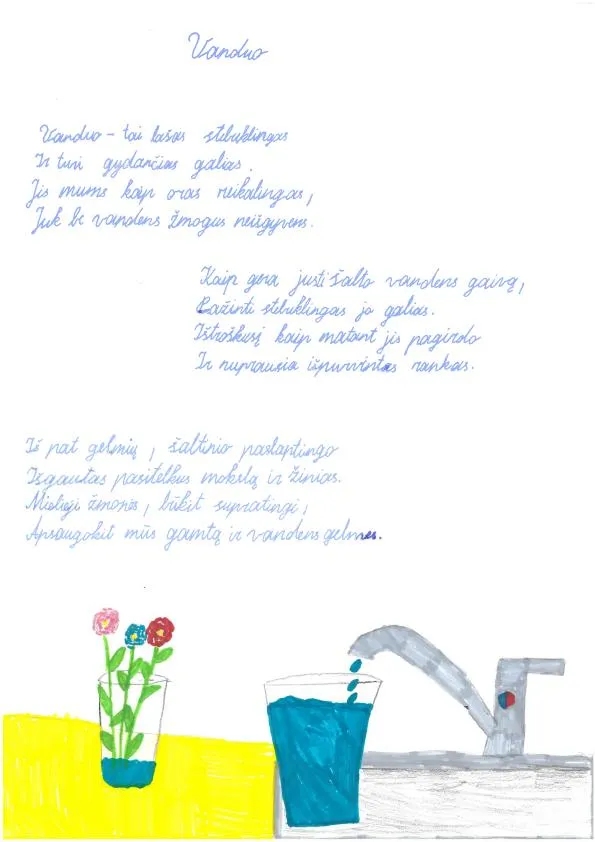 Vanduo
Vanduo - tai lašas stebuklingas
Ir turi gydančias galias.
Jis mums kaip oras reikalingas,
Juk be vandens žmogus neišgyvens.
Kaip gera justi šalto vandens gaivą,
Pažinti stebuklingas jo galias.
Ištroškusį kaip matant jis pagirdo
Ir nuprausia išpurvintas rankas.
Iš pat gelmių, šaltinio paslaptingo
Išgautas pasitelkus mokslą ir žinias.
Mielieji žmonės, būkit supratingi,
Apsaugokit mūs gamtą ir vandens gelmes.